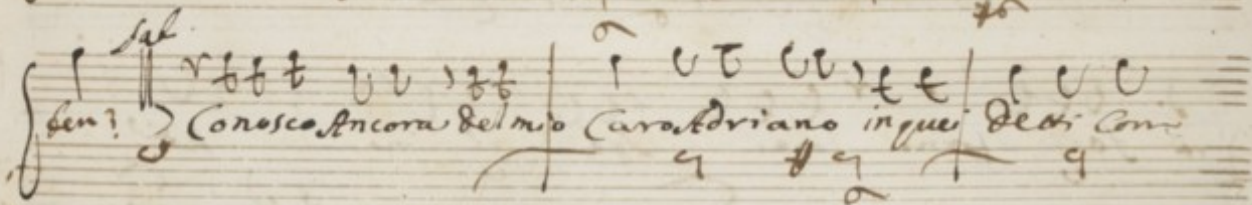 Sab
ben? Conosco Ancora del mio Caro Adriano in quei detti